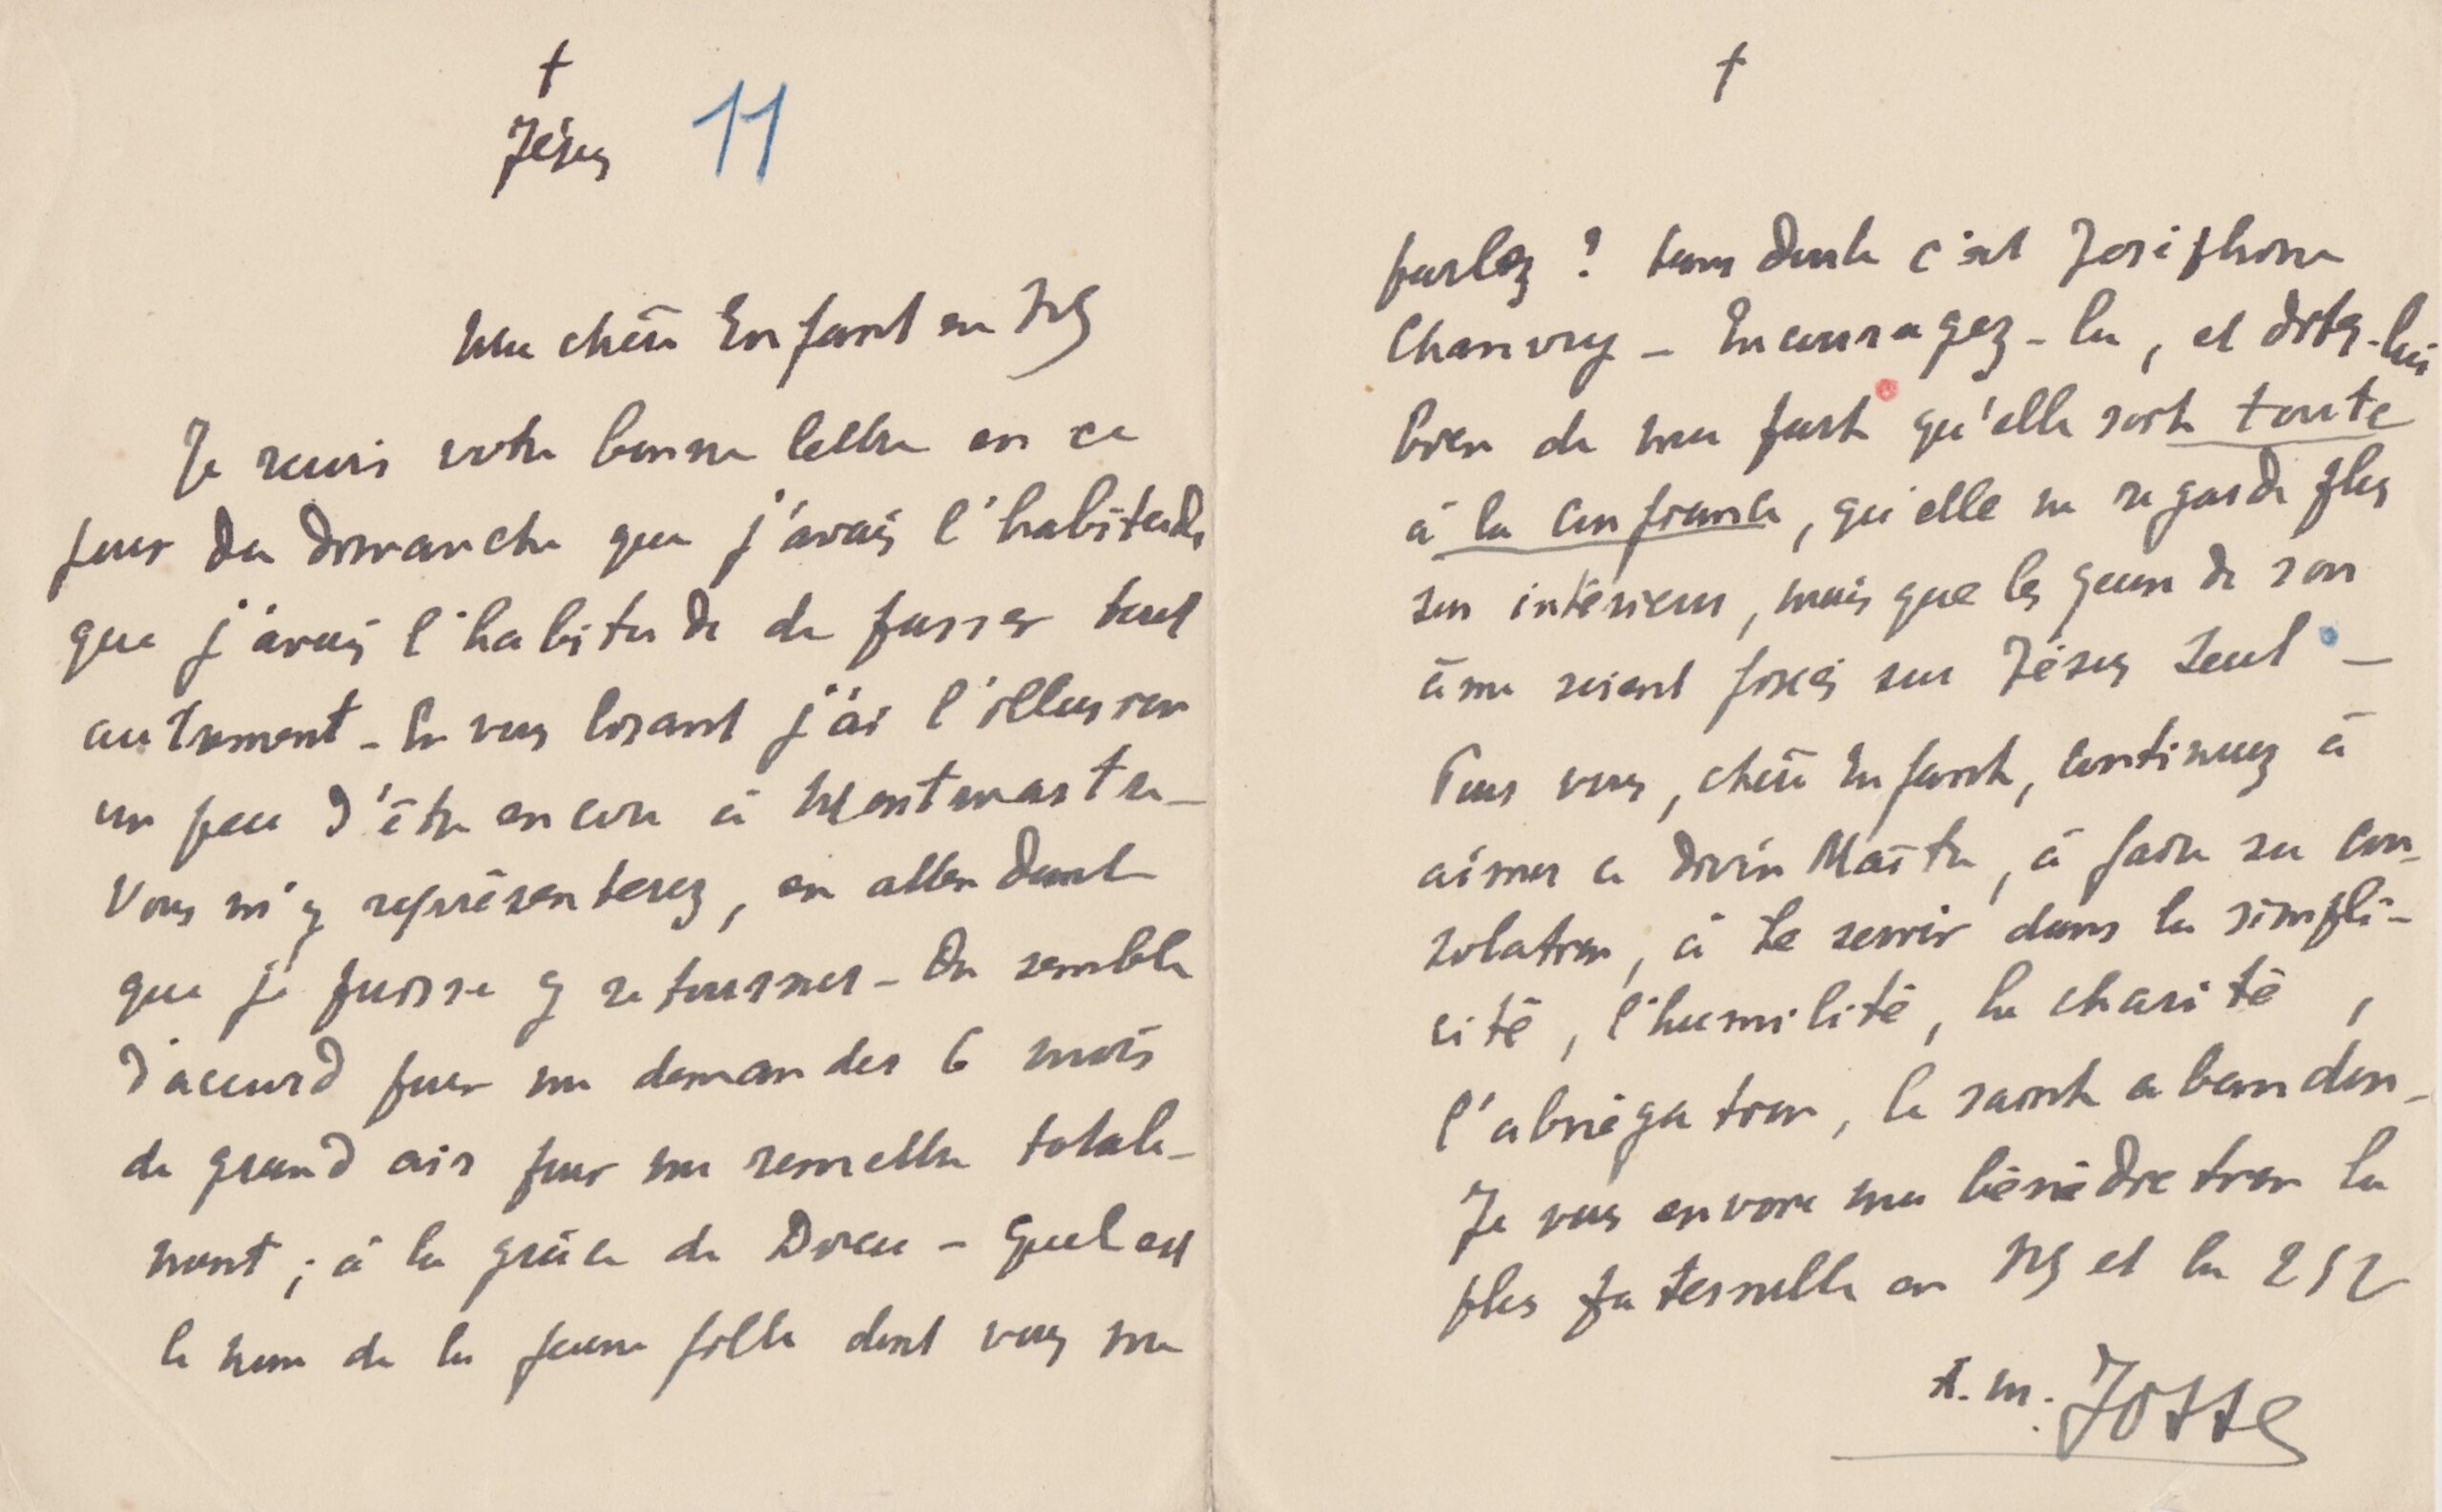 †
Jésus 11
Ma chère Enfant en NS
Je reçois votre bonne lettre en ce
jour du dimanche que j'avais l'habitude
que j'avais l'habitude de passer tout
autrement - En vous lisant j'ai l'illusion
un peu d'être encore à Montmartre -
Vous m'y représenterez, en attendant
que je puisse y retourner - On semble
d'accord pour me demander 6 mois
de grand air pour me remettre totale-
ment ; à la grâce de Dieu - Quel est
le nom de la jeune fille dont vous me
†
parlez ? sans doute c'est Joséphine
Chanvry - Encouragez-la, et dites-lui
bien de ma part qu'elle soit toute
à la confiance, qu'elle ne regarde plus
son intérieur, mais que les yeux de son
âme soient fixés sur Jésus Seul -
Pour vous, chère Enfant, continuez à
aimer ce divin Maître, à faire sa con-
solation, à le servir dans la simpli-
cité, l'humilité, la charité,
l'abnégation, le saint abandon -
Je vous envoie ma bénédiction la
plus paternelle en NS et la
A. M. Jossé